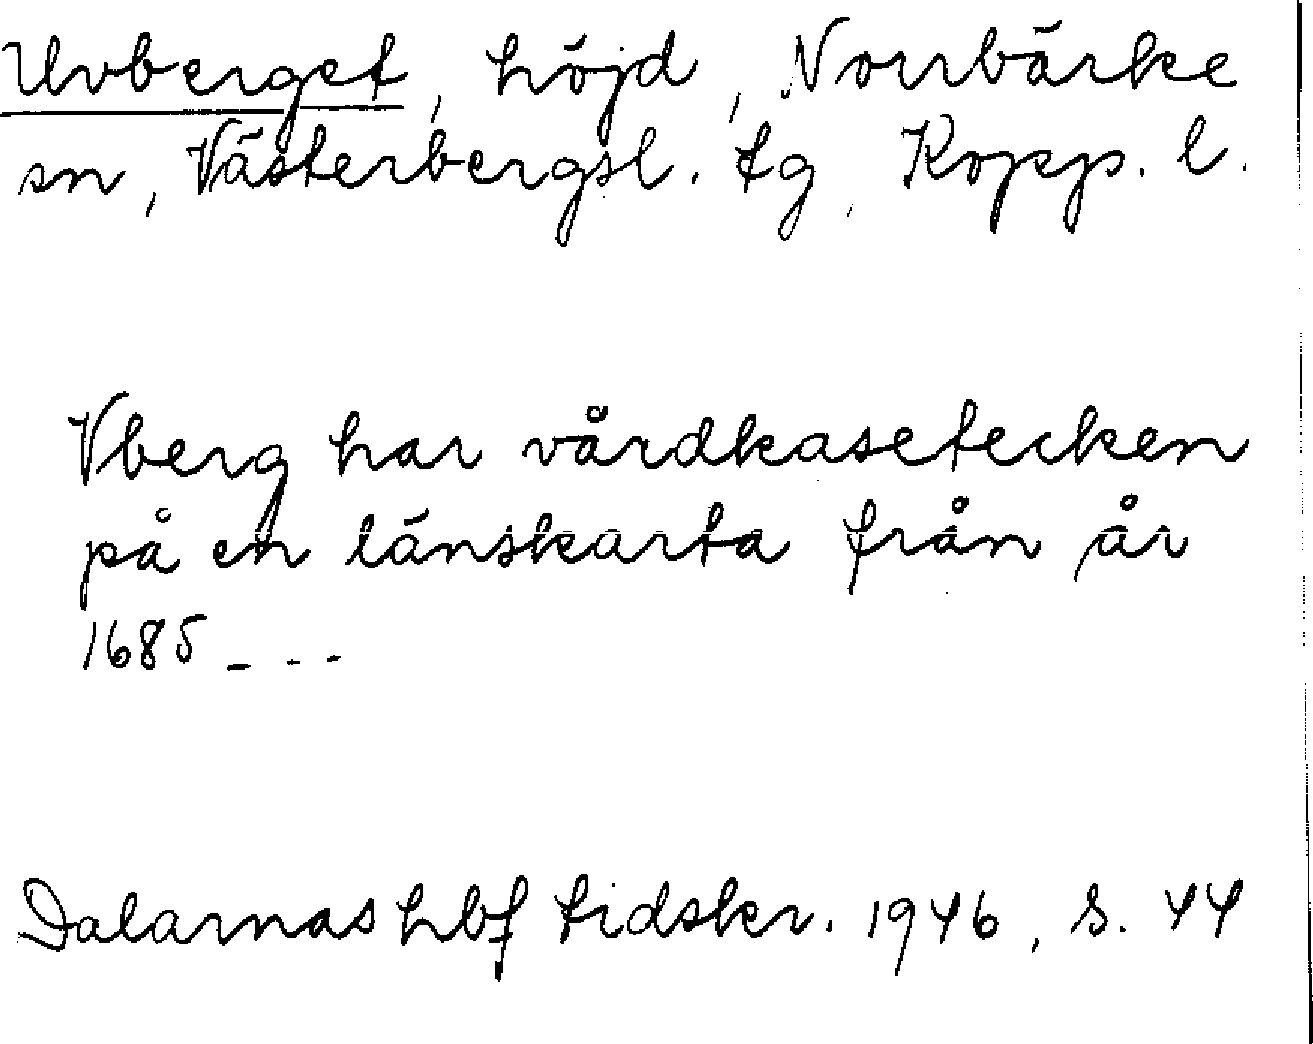 Uvberget, höjd, Norrbärke
sn, Västerbergsl. tg, Kopp. l.
Vberg har vårdkasetecken
på en länskarta från år
1685 - - -
Dalarnas hbf tidskr. 1946, s. 44